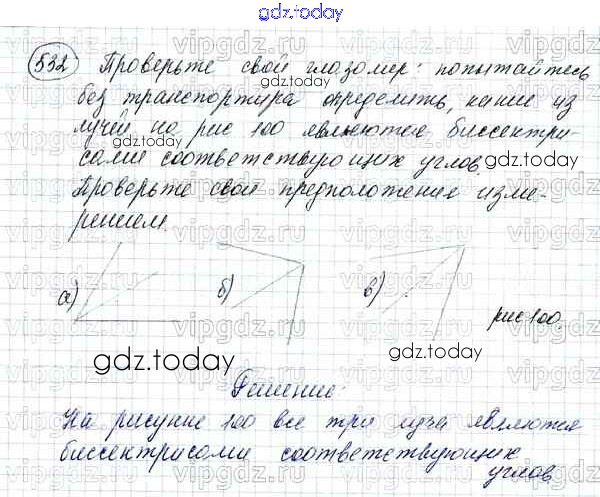 gdz.today
532 Проверьте свой глазомер: попытайтесь
gdz.today
без транспортира определить, какие из
лучей на рис 100 являются биссектри-
gdz.today
сами соответствующих углов.
gdz.today
Проверьте свои предположения изме-
рением.
а) б) в)
рис 100.
gdz.today
gdz.today
Решение:
На рисунке 100 все три луча являются
биссектрисами соответствующих
углов